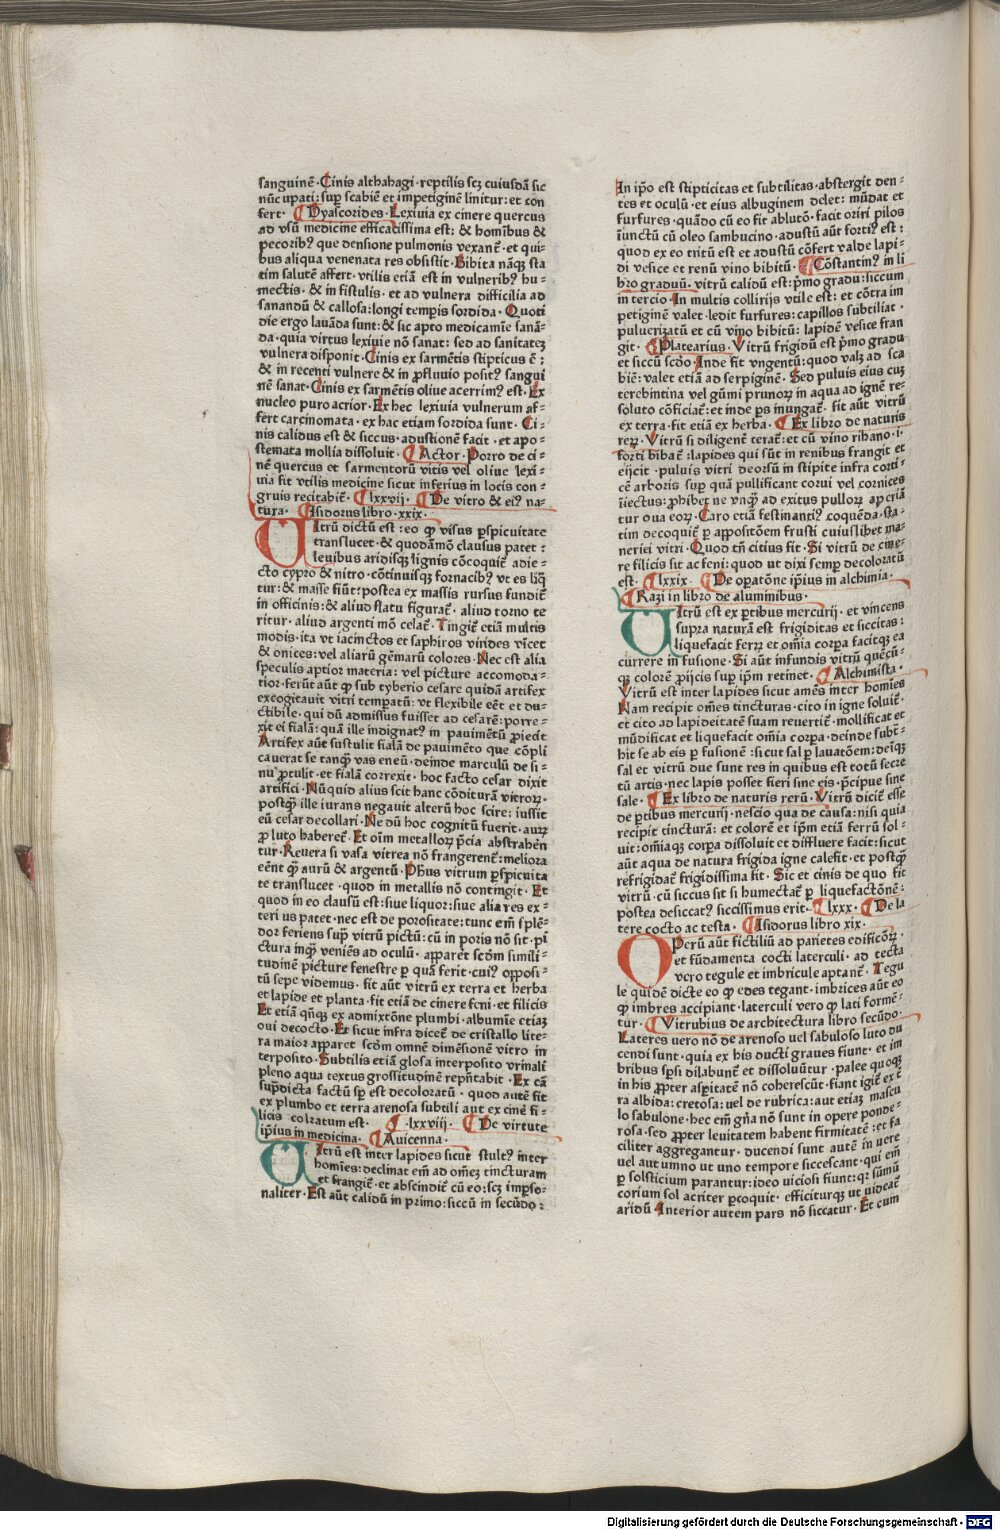 sanguinē·Cinis althahagi·reptilis scꝫ cuiusdā sic
nūcupati:suꝑ scabiē et impetiginē linitur:et con
fert· ¶Dyascorides·Lexiuia ex cinere quercus
ad vsū medicine efficacissima est: & hominibus &
pecoribꝰ que densione pulmonis vexanť·et qui-
bus aliqua venenata res obsistit·Bibita nāqꝫ sta
tim salutē affert·vtilis etiā est in vulneribꝰ hu-
mectis·& in fistulis·et ad vulnera difficilia ad
sanandū & callosa:longi tempis sordida·Quoti
die ergo lauāda sunt:& sic apto medicamīe sanā-
da·quia virtus lexiuie nō sanat:sed ad sanitatez
vulnera disponit·Cinis ex sarmētis stipticus ē:
& in recenti vulnere & in ꝓfluuio positꝰ sangui
nē sanat·Cinis ex sarmētis oliue acerrimꝰ est·Ex
nucleo puro acrior·Ex hec lexiuia vulnerum af-
fert carcinomata·ex hac etiam sordida sunt·Ci-
nis calidus est & siccus·adustionē facit·et apo-
stemata mollia dissoluit·¶Actor·Porro de ci-
nē quercus et sarmentorū vitis vel oliue lexi-
uia fit vtilis medicine sicut inferius in locis con-
gruis recitabiť·¶lxxvij·¶De vitro & eiꝰ na-
tura· ¶Isidorus libro·xxix·
UItrū dictū est:eo ꝙ visus ꝑspicuitate
translucet·& quodāmō clausus patet:
leuibus aridisqꝫ lignis cōcoquiť adie-
cto cypro & nitro·cōtinuisqꝫ fornacibꝰ vt es liq̄
tur:& masse fiūt:postea ex massis rursus fundiť
in officinis:& aliud flatu figurať·aliud torno te
ritur·aliud argenti mō celať·Tingiť etiā multis
modis·ita vt iacinctos et saphiros virides vīcet
& onices:vel aliarū gēmarū colores·Nec est alia
speculis aptior materia:vel picture accomoda-
tior·ferūt aūt ꝙ sub tyberio cesare quidā artifex
excogitauit vitri temperatū:vt flexibile eēt et du-
ctibile·qui dū admissus fuisset ad cesarē:porre-
xit ei fialā:quā ille indignatꝰ in pauimētū ꝓiecit
Artifex aūt sustulit fialā de pauimēto que cōpli
cauerat se tanqꝫ vas eneū·deinde marculū de si-
nu ꝓtulit·et fialā correxit·hoc facto cesar dixit
artifici·Nūquid alius scit hanc cōditurā vitroꝝ·
postqꝫ ille iurans negauit alterū hoc scire:iussit
eū cesar decollari·Ne dū hoc cognitū fuerit·auꝝ
ꝓ luto habereť·Et oīm metalloꝝ ꝑcia abstrahen
tur·Reuera si vasa vitrea nō frangerenť:meliora
eēnt ꝙ̄ aurū & argentū·Phūs vitrum ꝑspicuita
te translucet·quod in metallis nō contingit·Et
quod in eo clausū est:siue liquor:siue alia res ex-
teriꝰ patet·nec est de porositate:tunc em̄ splē-
dor feriens suꝑ vitrū pictū:cū in poris nō sit·pī
ctura inqꝫ veniēs ad oculū·apparet scdm simili-
tudinē picture fenestre ꝑ quā ferit·cuiꝰ opposi-
tū sepe videmus·fit aūt vitrū ex terra et herba
et lapide et planta·fit etiā de cinere feni·et filicis
Et etiā qn̄qꝫ ex admixtōne plumbi·albumīe etiaꝫ
oui decocto·Et sicut infra diceť de cristallo lite-
ra maior apparet scdm omnē dimēsionē vitro in
terposito·Subtilis etiā glosa interposito vrinali
pleno aqua textus grossitudinē repn̄tabit·Ex cā
supꝰdicta factū sꝑ est decoloratū·quod autē fit
ex plumbo et terra arenosa subtili aut ex cinē fi-
licis colratum est· ¶·lxxviij·¶De virtute
ipīus in medicina· ¶Auicenna·
UItrū est inter lapides sicut stultꝰ inter
homīes:declinat em̄ ad omeꝫ tincturam
et frangiť·et abscindiť cū eo:scꝫ imꝑso-
naliter·Est aūt calidū in primo:siccū in secūdo:
In ipō est stipticitas et subtilitas·abstergit den-
tes et oculū·et eius albuginem delet:mūdat et
furfures·quādo cū eo fit ablutō·facit oriri pilos
iūnctū cū oleo sambucino·adustū aūt fortiꝰ est:
quod ex eo tritū est et adustū cōfert valde lapi-
di vesice et renū vino bibitū·¶Cōstantinꝰ in li
bro graduū·vitrū calidū est:ꝑmo gradu:siccum
in tercio·In multis collirijs vtile est:et cōtra im
petiginē valet·ledit furfures:capillos subtiliat·
puluerizatū et cū vino bibitū:lapidē vesice fran
git·¶Platearius·Vitrū frigidū est ꝑmo gradu
et siccū scdō·Inde fit vngentū:quod valꝫ ad sca
biē:valet etiā ad serpiginē·Sed puluis eius cuꝫ
terebintina vel gūmi prunoꝝ in aqua ad ignē re-
soluto cōficiať:et inde ꝑs inungať·fit aūt vitrū
ex terra·fit etiā ex herba·¶Ex libro de naturis
reꝝ·Vitrū si diligenť terať:et cū vino ribano·i·
forti bibať:lapides qui sūt in renibus frangit et
eijcit·puluis vitri deorsū in stipite infra corti-
cē arboris suꝑ quā pullificant corui vel cornices
iniectus:ꝓhibet ne vnqꝫ ad exitus pulloꝝ aꝑiā
tur oua eoꝝ·Caro etiā festinantiꝰ coquēda·sta-
tim decoquiť ꝑ appositōem frusti cuiuslibet ma-
neriei vitri·Quod tn̄ citius fit·Si vitrū de cine-
re filicis sit ac feni:quod ut dixi semꝑ decoloratū
est·¶lxxix· ¶De oꝑatōne ipīus in alchimia·
¶Razi in libro de aluminibus·
UItrū est ex ꝑtibus mercurij·et vincens
supra naturā est frigiditas et siccitas:
liquefacit ferꝝ et om̄ia corꝑa facitqꝫ ea
currere in fusione·Si aūt infundis vitrū quēcū-
qꝫ colorē ꝓijcis suꝑ ipm̄ retinet·¶Alchimista·
Vitrū est inter lapides sicut amēs inter homīes
Nam recipit om̄es tincturas·cito in igne soluiť·
et cito ad lapideitatē suam reuertiť·mollificat et
mūdificat et liquefacit om̄ia corꝑa·deinde subti-
hit se ab eis ꝑ fusionē:sicut sal ꝑ lauatōem:deīqꝫ
sal et vitrū due sunt res in quibus est totū secre
tū artis·nec lapis posset fieri sine eis·ꝑcipue sine
sale·¶Ex libro de naturis rerū·Vitrū diciť esse
de ꝑtibus mercurij·nescio qua de causa:nisi quia
recipit tincturā:et colorē et ipm̄ etiā ferrū sol-
uit:om̄iaqꝫ corꝑa dissoluit et diffluere facit:sicut
aūt aqua de natura frigida igne calefit·et postqꝫ
refrigidať frigidissima fit·Sic et cinis de quo fit
vitrū·cū siccus sit si humectať ꝑ liquefactōnē:
postea desiccatꝰ siccissimus erit·¶lxxx·¶De la
tere cocto ac testa· ¶Isidorus libro xix·
OPerū aūt fictiliū ad parietes edificōꝝ·
et fūdamenta cocti laterculi·ad tecta
vero tegule et imbricule aptanť·Tegu
le quidē dicte eo ꝙ edes tegant·imbrices aūt eo
ꝙ imbres accipiant·laterculi vero ꝙ lati formē-
tur·¶Vitrubius de architectura libro secūdo·
Lateres uero nō de arenoso uel sabuloso luto du
cendi sunt·quia ex his ducti graues fiunt·et im
bribus sꝑsi dilabunť et dissoluūtur·palee quoqꝫ
in his ꝓpter asꝑitatē nō coherescūt·fiant igiť ex t̄
ra albida:cretosa:uel de rubrica:aut etiaꝫ mascu
lo sabulone·hec em̄ gn̄a nō sunt in opere ponde-
rosa·sed ꝓpter leuitatem habent firmitatē:et fa
ciliter aggregantur·ducendi sunt autē in uere
uel autumno ut uno tempore siccescant·qui em̄
ꝑ solsticium parantur:ideo uiciosi fiunt:qꝛ sūmū
corium sol acriter ꝑcoquit·efficiturqꝫ ut uideať
aridū Interior autem pars nō siccatur·Et cum
Digitalisierung gefördert durch die Deutsche Forschungsgemeinschaft · DFG